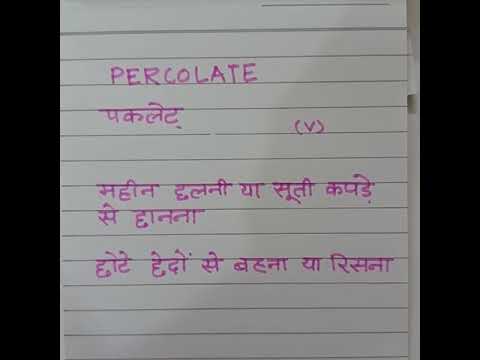 PERCOLATE
पकलेट्
(V)
महीन छलनी या सूती कपड़े
से छानना
छोटे छेदों से बहना या रिसना